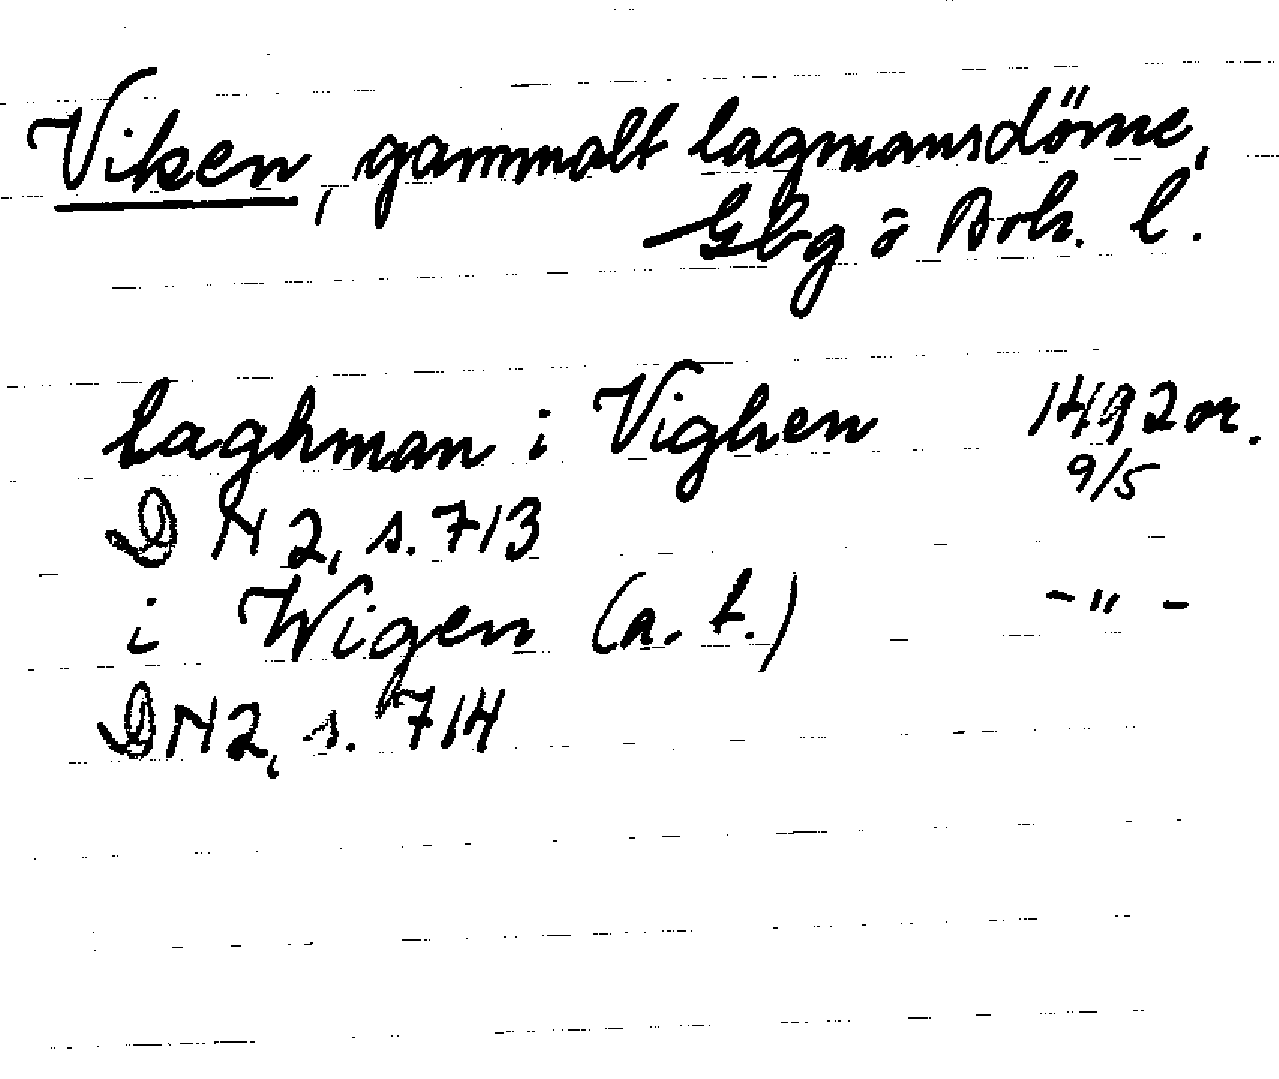 Viken, gammalt lagmansdöme,
Gbg o Boh. l.
laghman i Vighen 1492 or.
9/5
DN 2, s. 713
i Wigen (a. t.) -"-
DN 2, s. 714